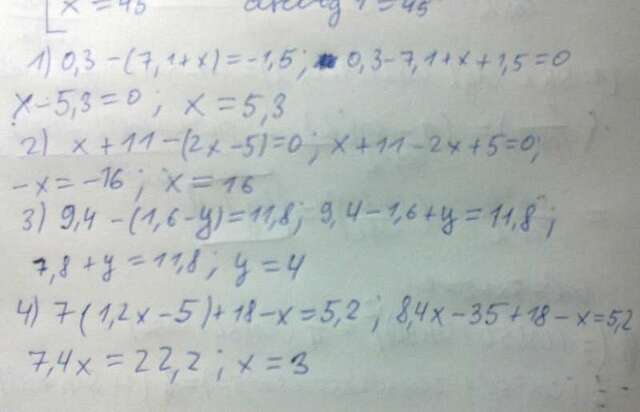 x = 45
1) 0,3-(7,1+x)=-1,5; 0,3-7,1+x+1,5=0
x-5,3=0; x=5,3
2) x+11-(2x-5)=0; x+11-2x+5=0;
-x=-16; x=16
3) 9,4-(1,6-y)=11,8; 9,4-1,6+y=11,8;
7,8+y=11,8; y=4
4) 7(1,2x-5)+18-x=5,2; 8,4x-35+18-x=5,2
7,4x=22,2; x=3